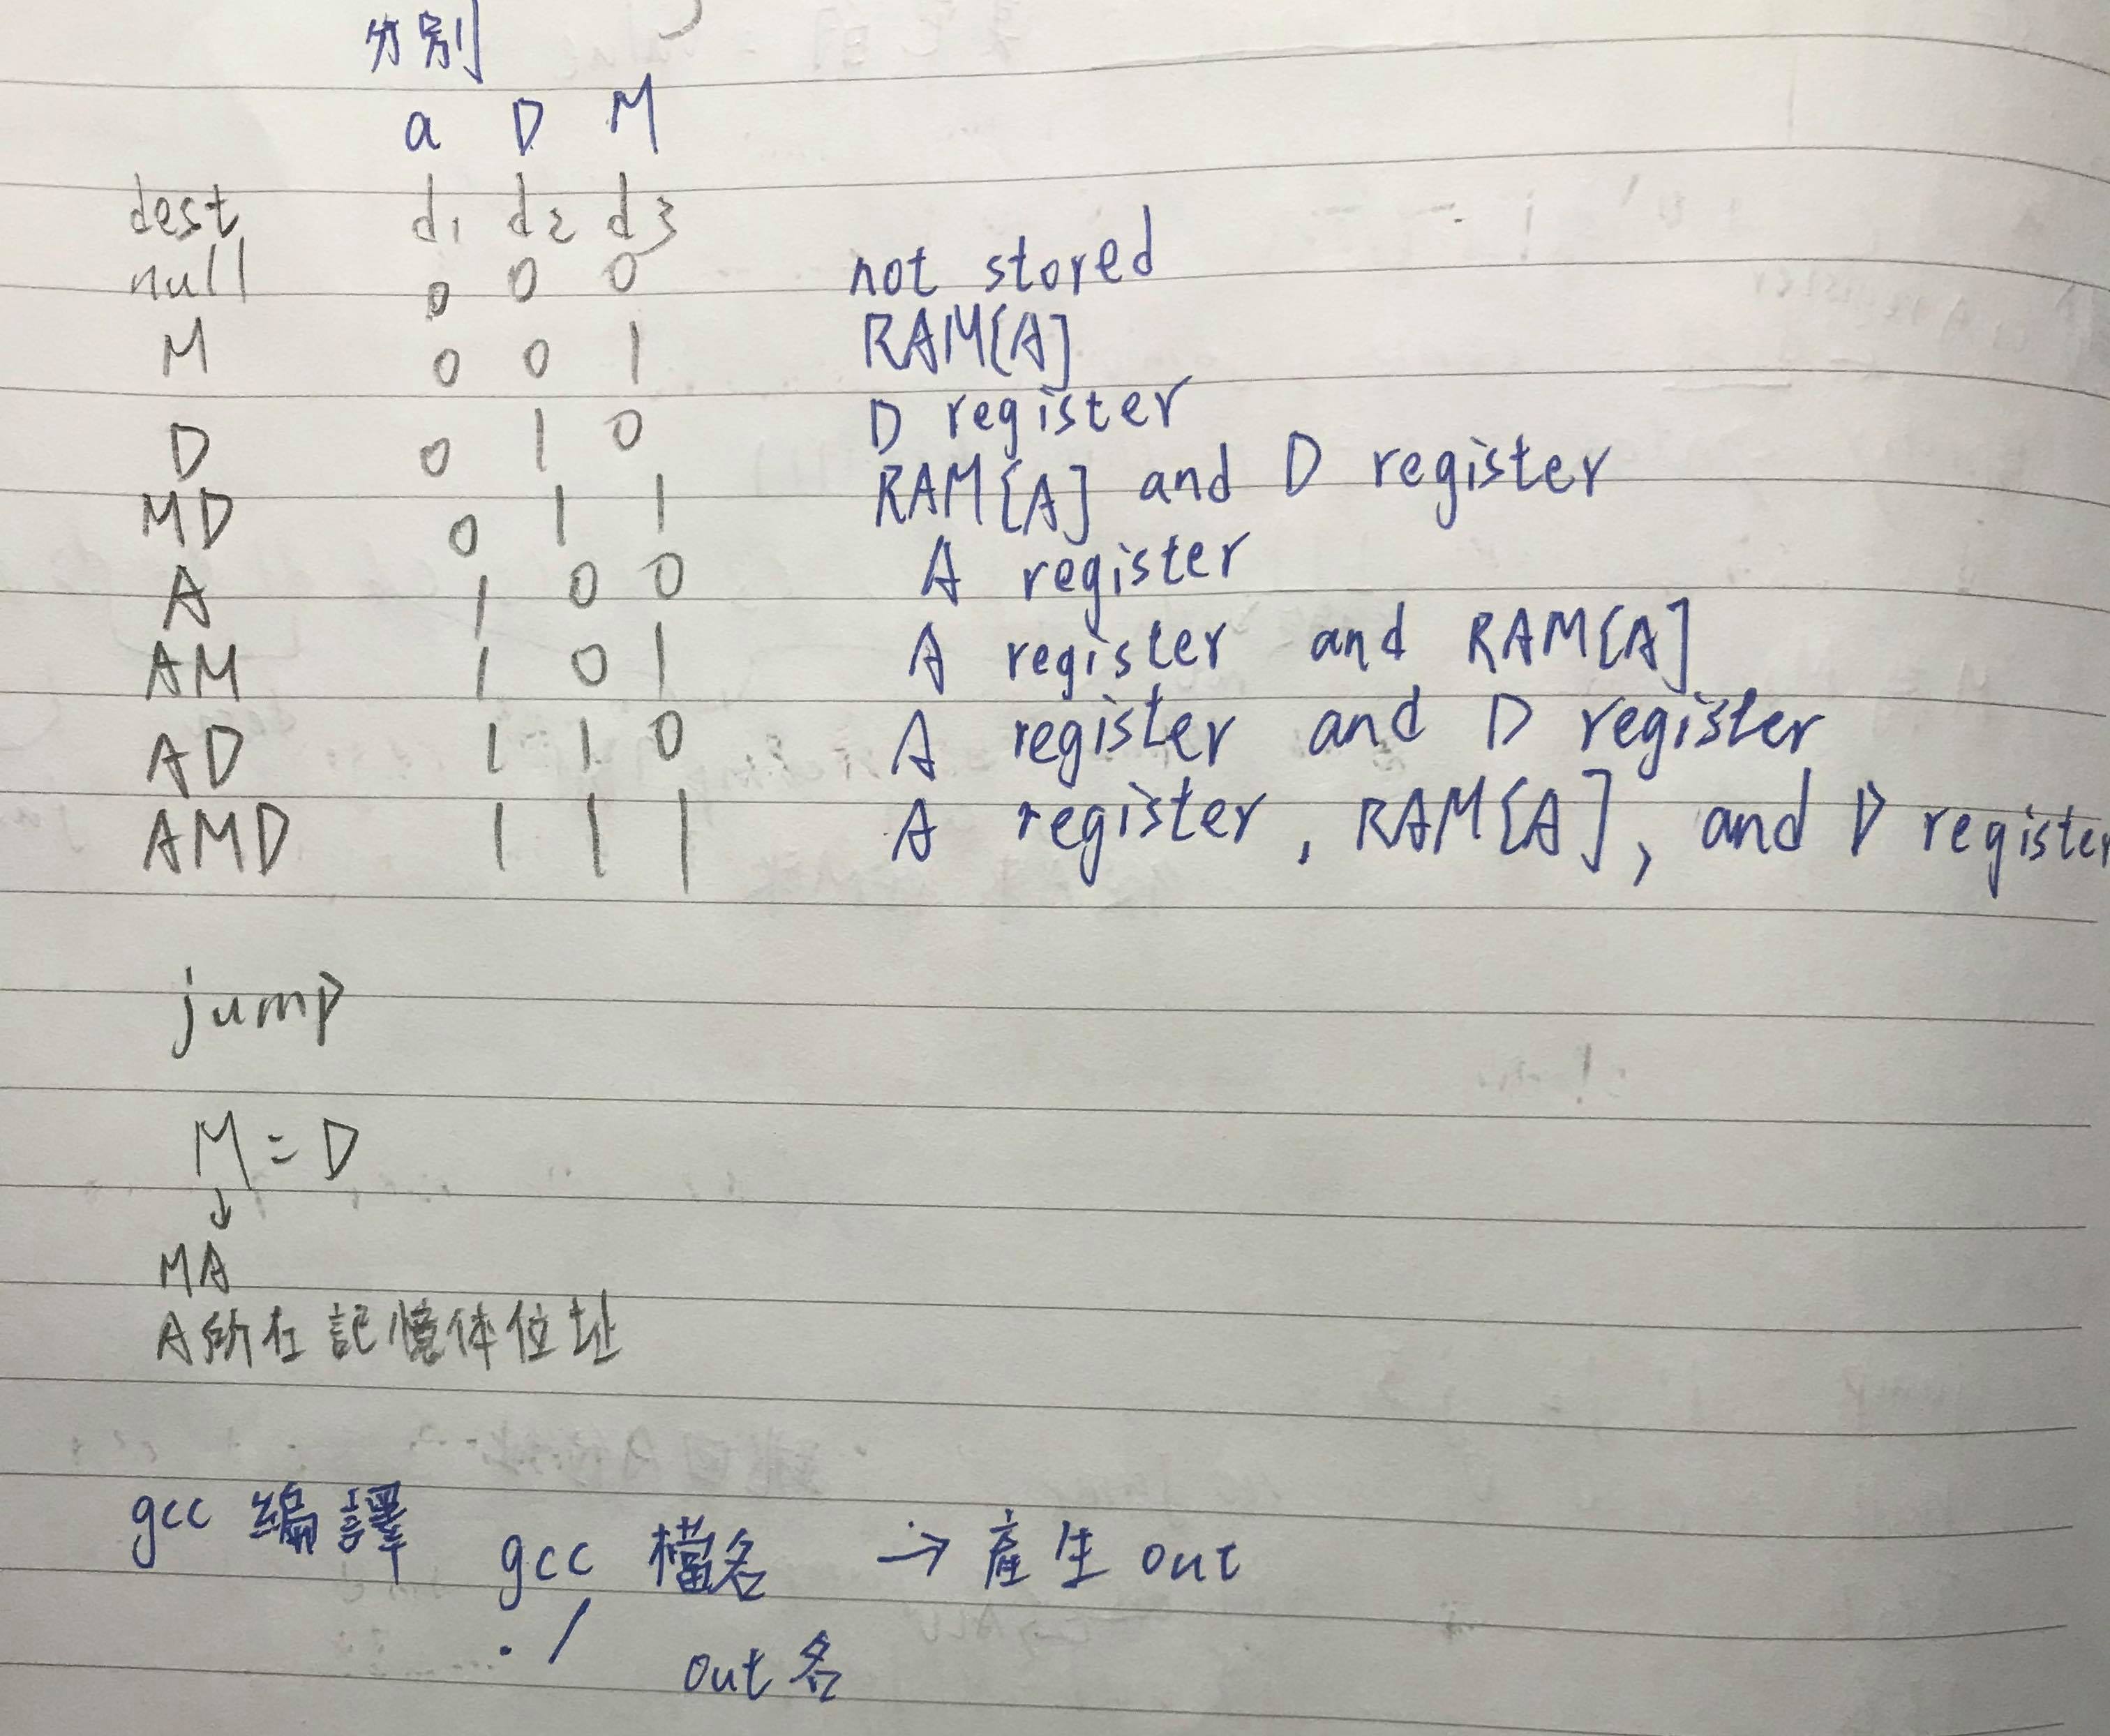 分別
a D M
dest d1 d2 d3
null 0 0 0 not stored
M 0 0 1 RAM[A]
D 0 1 0 D register
MD 0 1 1 RAM[A] and D register
A 1 0 0 A register
AM 1 0 1 A register and RAM[A]
AD 1 1 0 A register and D register
AMD 1 1 1 A register, RAM[A], and D register
jump
M=D
↓
MA
A所在記憶体位址
gcc 編譯 gcc 檔名 → 產生 out
./ out名